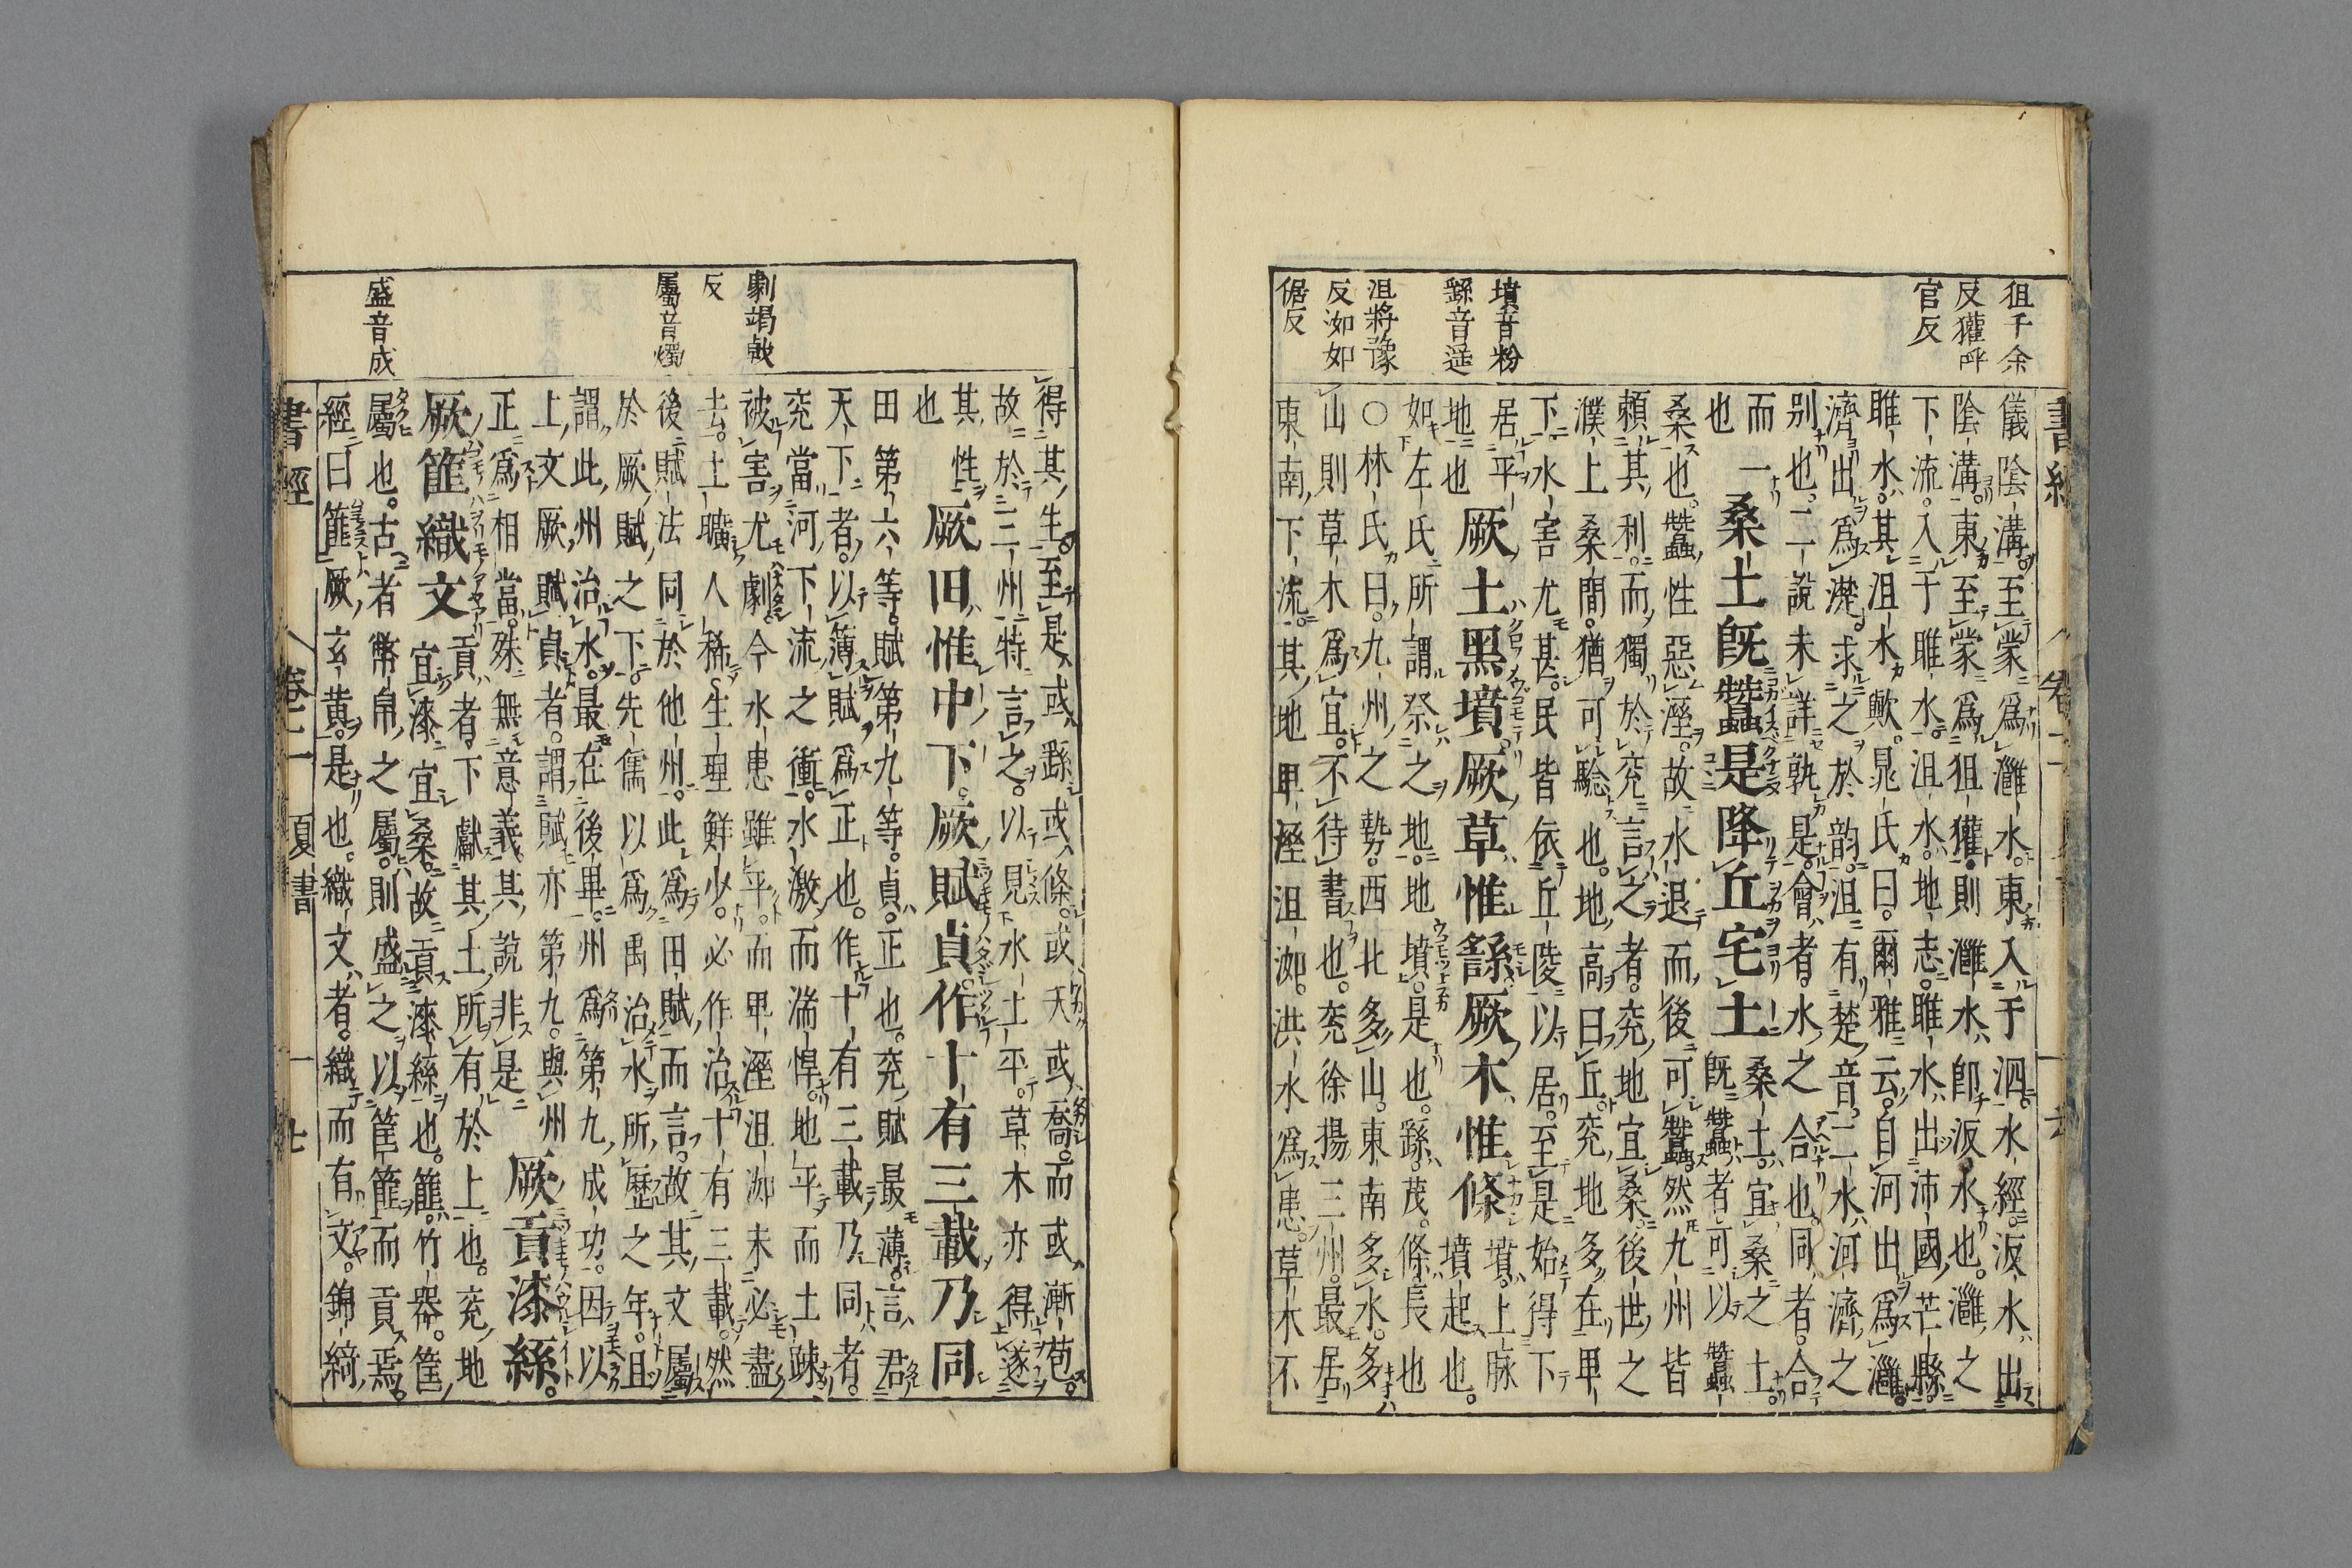 狙千余
反獾呼
官反
墳音粉
繇音遥
沮將豫
反洳如
倨反
儀陰溝至蒙爲灉水東入于泗水經汳水出
陰溝東至蒙爲狙獾則灉水即汳水也灉之
下流入于睢水沮水地志睢水出沛國芒縣
睢水其沮水歟晁氏曰爾雅云自河出爲灉
濟出爲濋求之於韵沮有楚音二水河濟之
别也二說未詳孰是會者水之合也同者合
而一桑土既蠶是降丘宅土桑土宜桑之土
也既蠶者可以蠶
桑也蠶性惡溼故水退而後可蠶然九州皆
頼其利而獨於兖言之者兖地宜桑後世之
濮上桑間猶可驗也地高曰丘兖地多在卑
下水害尤甚民皆依丘陵以居至是始得下
居平厥土黑墳厥草惟繇厥木惟條墳土脉
地也墳起也
如左氏所謂祭之地地墳是也繇茂條長也
○林氏曰九州之勢西北多山東南多水多
山則草木爲宜不待書也兖徐揚三州最居
東南下流其地卑溼沮洳洪水爲患草木不
書經
卷二
劇竭戟
反
屬音燭
盛音成
得其生至是或繇或條或夭或喬而或漸苞
故於三州特言之以見水土平草木亦得遂
其性厥田惟中下厥賦貞作十有三載乃同
也
田第六等賦第九等貞正也兖賦最薄言君
天下者以薄賦爲正也作十有三載乃同者
兖當河下流之衝水激而湍悍地平而土疎
被害尤劇今水患雖平而卑溼沮洳未必盡
去土曠人稀生理鮮少必作治十有三載然
後賦法同於他州此爲田賦而言故其文屬
於厥賦之下先儒以爲禹治水所歷之年且
謂此州治水最在後畢州爲第九成功因以
上文厥賦貞者謂賦亦第九與州
正爲相當殊無意義其說非是厥貢漆絲
厥篚織文貢者下獻其土所有於上也兖地
宜漆宜桑故貢漆絲也篚竹器筐
屬也古者幣帛之屬則盛之以筐篚而貢焉
經曰篚厥玄黄是也織文者織而有文錦綺
書經
卷二 夏書
十七